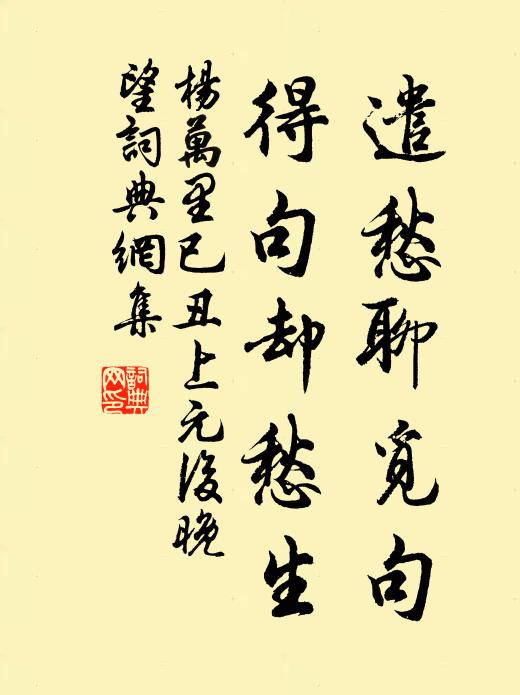 遣愁聊覓句
得句却愁生
楊萬里已丑上元後晚
望詞典網集
詞典网印